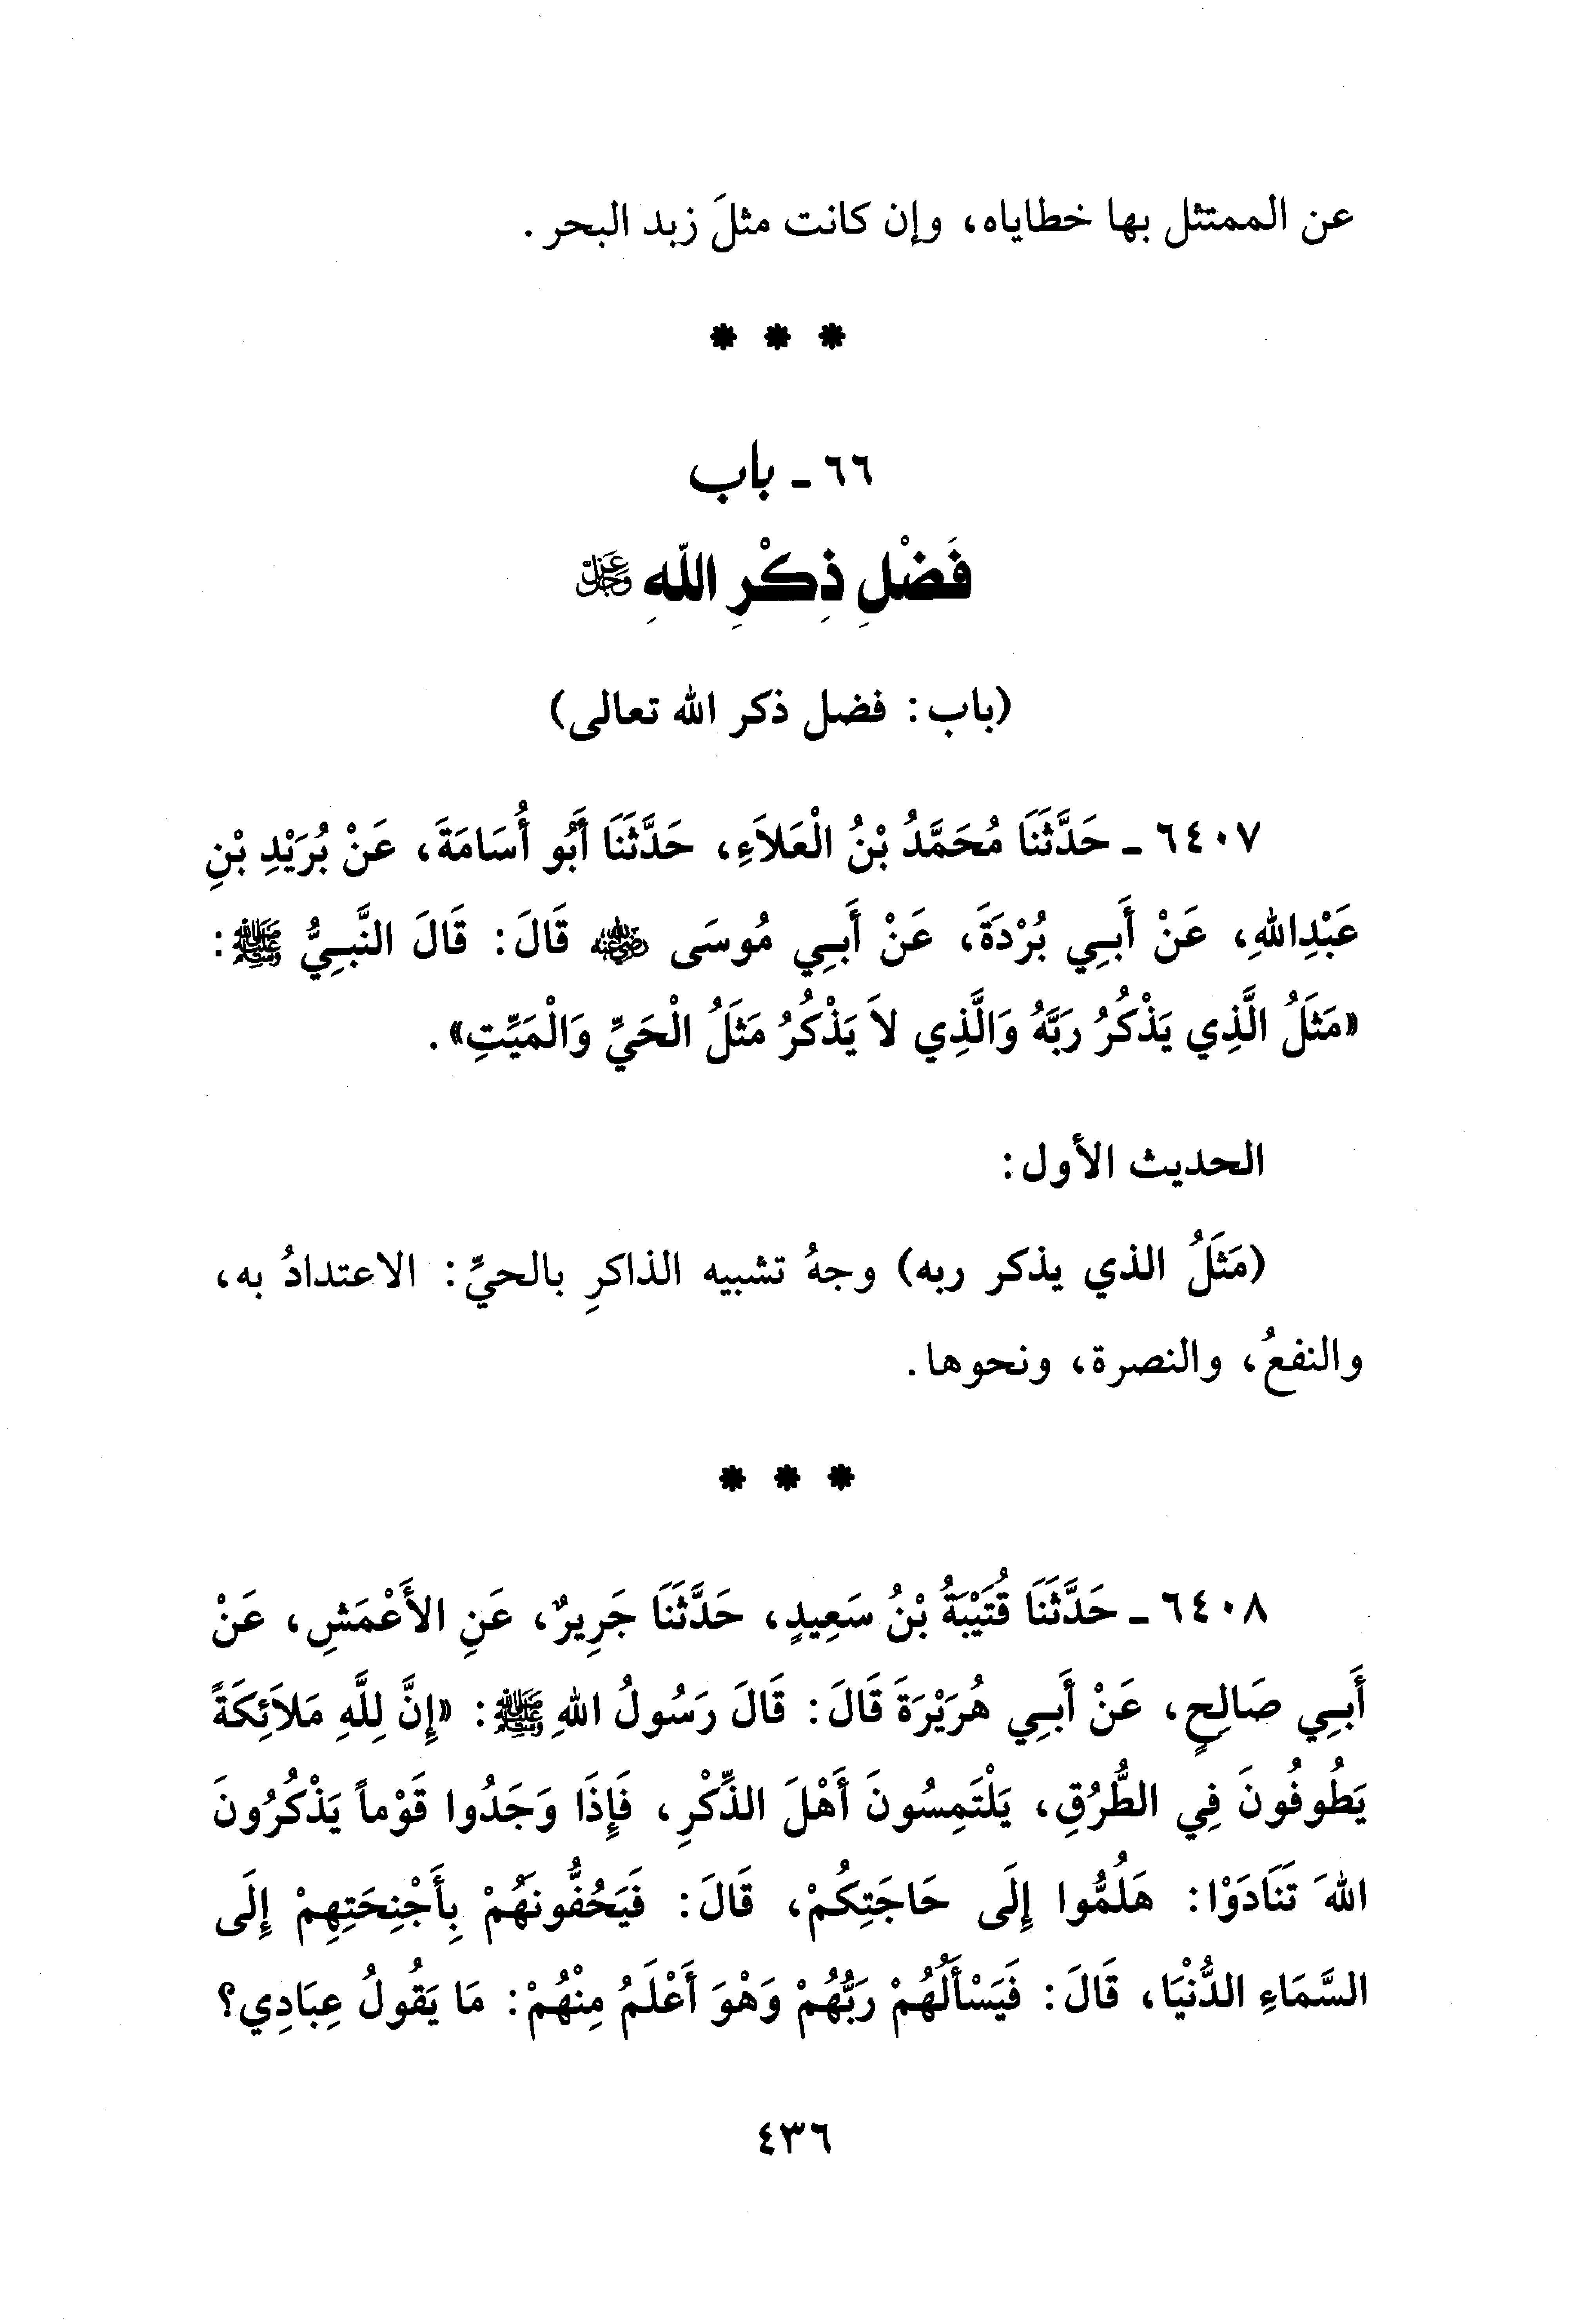 عن الممتثل بها خطاياه، وإن كانت مثلَ زبد البحر.
* * *
٦٦ ـ باب
فَضْلِ ذِكْرِ اللَّهِ عَزَّ وَجَلَّ
(باب: فضل ذكر الله تعالى)
٦٤٠٧ ـ حَدَّثَنَا مُحَمَّدُ بْنُ الْعَلاَءِ، حَدَّثَنَا أَبُو أُسَامَةَ، عَنْ بُرَيْدِ بْنِ
عَبْدِاللهِ، عَنْ أَبِي بُرْدَةَ، عَنْ أَبِي مُوسَى رضي الله عنه قَالَ: قَالَ النَّبِيُّ ﷺ:
«مَثَلُ الَّذِي يَذْكُرُ رَبَّهُ وَالَّذِي لاَ يَذْكُرُ مَثَلُ الْحَيِّ وَالْمَيِّتِ».
الحديث الأول:
(مَثَلُ الذي يذكر ربه) وجهُ تشبيه الذاكرِ بالحيِّ: الاعتدادُ به،
والنفعُ، والنصرة، ونحوها.
* * *
٦٤٠٨ ـ حَدَّثَنَا قُتَيْبَةُ بْنُ سَعِيدٍ، حَدَّثَنَا جَرِيرٌ، عَنِ الأَعْمَشِ، عَنْ
أَبِي صَالِحٍ، عَنْ أَبِي هُرَيْرَةَ قَالَ: قَالَ رَسُولُ اللهِ ﷺ: «إِنَّ لِلَّهِ مَلاَئِكَةً
يَطُوفُونَ فِي الطُّرُقِ، يَلْتَمِسُونَ أَهْلَ الذِّكْرِ، فَإِذَا وَجَدُوا قَوْماً يَذْكُرُونَ
اللهَ تَنَادَوْا: هَلُمُّوا إِلَى حَاجَتِكُمْ، قَالَ: فَيَحُفُّونَهُمْ بِأَجْنِحَتِهِمْ إِلَى
السَّمَاءِ الدُّنْيَا، قَالَ: فَيَسْأَلُهُمْ رَبُّهُمْ وَهْوَ أَعْلَمُ مِنْهُمْ: مَا يَقُولُ عِبَادِي؟
٤٣٦